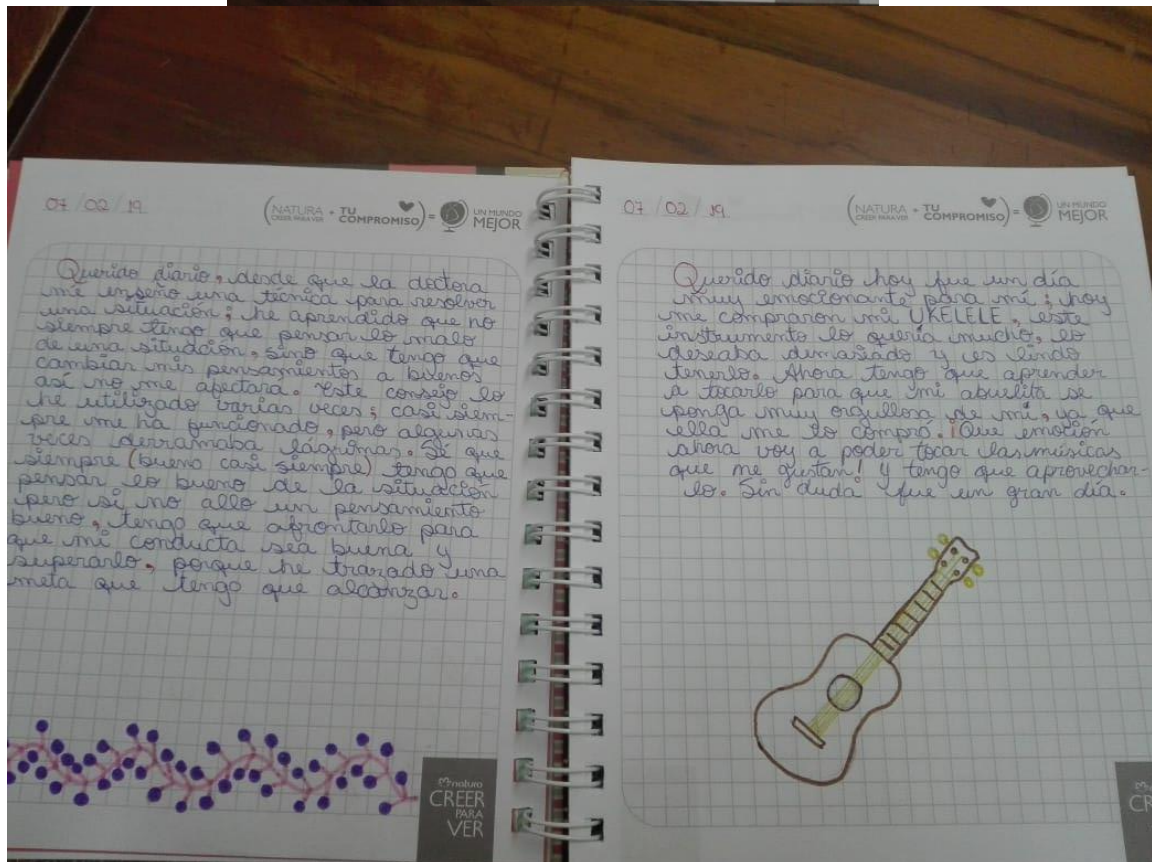 07/02/19
(NATURA CREER PARA VER + TU COMPROMISO) = UN MUNDO MEJOR
Querido diario, desde que la doctora
me enseño una técnica para resolver
una situación; he aprendido que no
siempre tengo que pensar lo malo
de una situación, sino que tengo que
cambiar mis pensamientos a buenos
así no me afectará. Este consejo lo
he utilizado varias veces; casi siem-
pre me ha funcionado, pero algunas
veces derramaba lágrimas. Sé que
siempre (bueno casi siempre) tengo que
pensar lo bueno de la situación
pero si no allo un pensamiento
bueno, tengo que afrontarlo para
que mi conducta sea buena y
superarlo, porque he trazado una
meta que tengo que alcanzar.
natura
CREER
PARA
VER
07/02/19
(NATURA CREER PARA VER + TU COMPROMISO) = UN MUNDO MEJOR
Querido diario hoy fue un día
muy emocionante para mí; hoy
me compraron mi UKELELE, este
instrumento lo quería mucho, lo
deseaba demasiado y es lindo
tenerlo. Ahora tengo que aprender
a tocarlo para que mi abuelita se
ponga muy orgullosa de mí, ya que
ella me lo compró. ¡Que emoción
ahora voy a poder tocar las músicas
que me gustan! y tengo que aprovechar-
lo. Sin duda fue un gran día.
CR